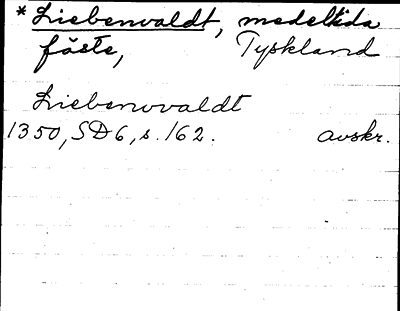 * Liebenvaldt, medeltida
fäste, Tyskland
Liebenvvaldt
1350, SD6, s. 162. avskr.